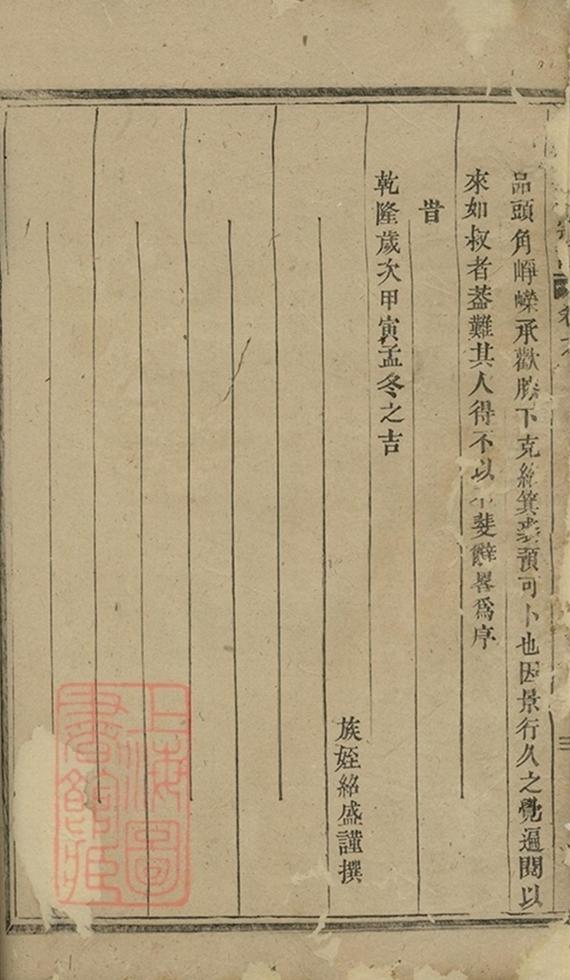 品頭角崢嶸承歡膝下克紹箕裘預可卜也因景行久之覺遍閱以
來如叔者蓋難其人得不以不斐辭畧爲序
旹
乾隆歲次甲寅孟冬之吉
族姪紹盛謹撰
上海圖
書館藏